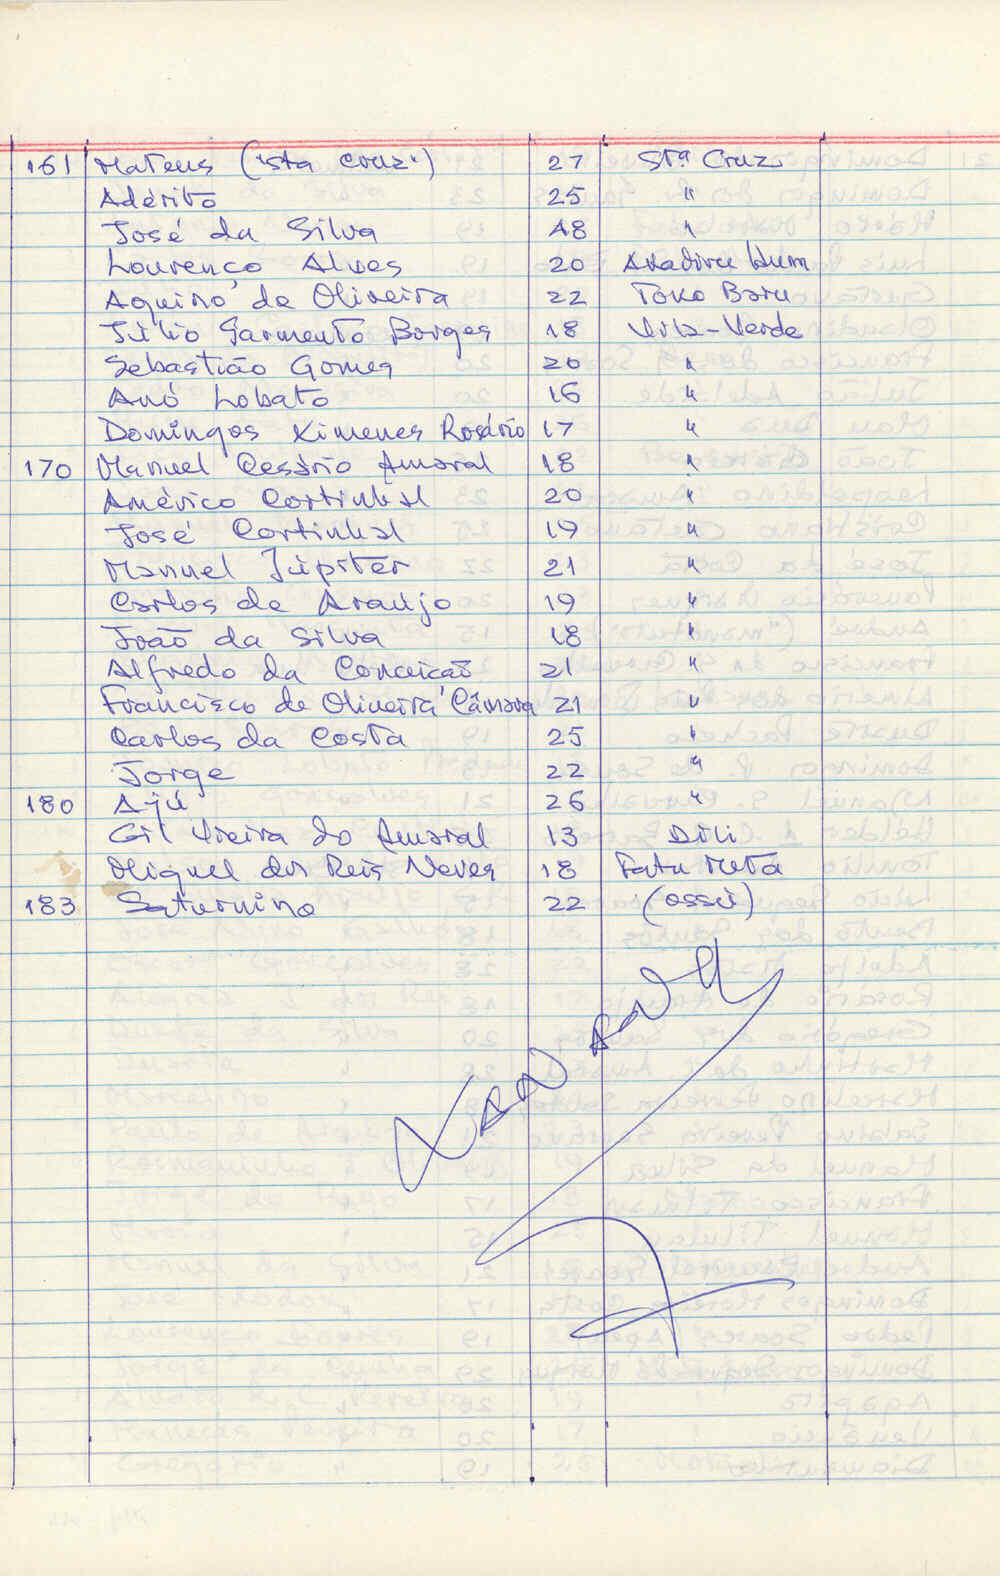 161 Mateus ("sta cruz") 27 Stª Cruz
Adérito 25 "
José da Silva 48 "
Lourenço Alves 20 Akadiru Hum
Aquino de Oliveira 22 Toko Baru
Júlio Sarmento Borges 18 Vila-Verde
Sebastião Gomes 20 "
Anó Lobato 16 "
Domingos Ximenes Rosário 17 "
170 Manuel Cesário Amaral 18 "
Américo Cortinhal 20 "
José Cortinhal 19 "
Manuel Júpiter 21 "
Carlos de Araújo 19 "
João da Silva 18 "
Alfredo da Conceicão 21 "
Francisco de Oliveira Câmara 21 "
Carlos da Costa 25 "
Jorge 22 "
180 Ajú 26 "
Gil Vieira do Amaral 13 Díli
Miguel dos Reis Neves 18 Fatu Meta
183 Saturnino 22 (ossú)
Xanana